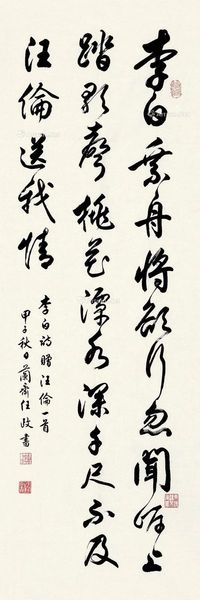 李白乘舟將欲行忽聞岸上
踏歌聲桃花潭水深千尺不及
汪倫送我情
李白詩贈汪倫一首
甲子秋日蘭齋任政書